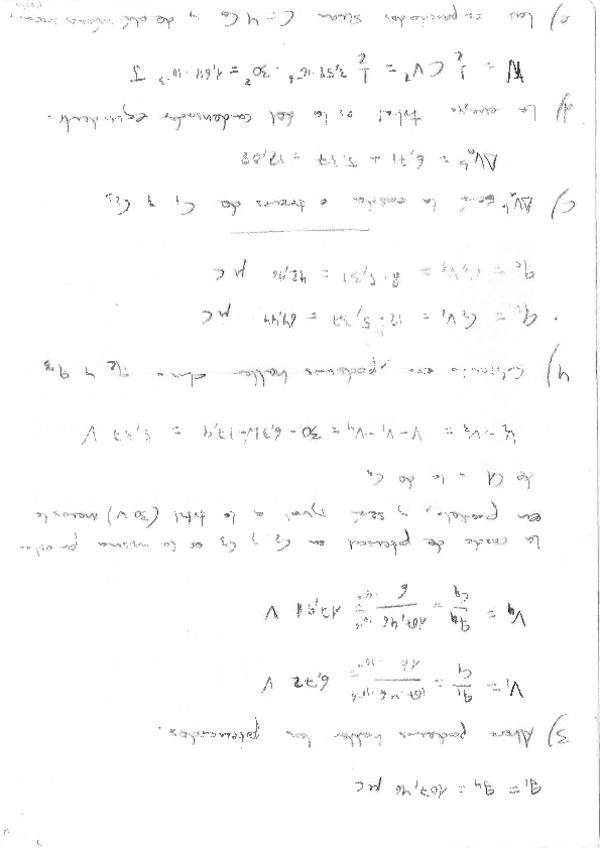 q₁ = q₄ = 107,46 μC
3) Ahora podemos hallar los potenciales.
V₁ = q₁/C₁ = 107,46·10⁻⁶ / 16·10⁻⁶ = 6,72 V
V₄ = q₄/C₄ = 107,46·10⁻⁶ / 6·10⁻⁶ = 17,91 V
la caída de potencial en C₂ y C₃ es la misma por estar
en paralelo, y será igual a la total (30 V) menos la
de C₁ - la de C₄
V₂ = V₃ = V - V₁ - V₄ = 30 - 6,71 - 17,9 = 5,37 V
4) podemos hallar q₂ y q₃
q₂ = C₂V₂ = 12·5,37 = 64,44 μC
q₃ = C₃V₃ = 8·5,37 = 42,96 μC
c) ΔVₐᵇ será la a través de C₁ y C₂₃
ΔVₐᵇ = 6,71 + 5,37 = 12,08
d) la energía total es la del condensador equivalente.
W = 1/2 CV² = 1/2 3,58·10⁻⁶ · 30² = 1,61·10⁻³ J
e) las capacidades serán C = 4 C₀ y de